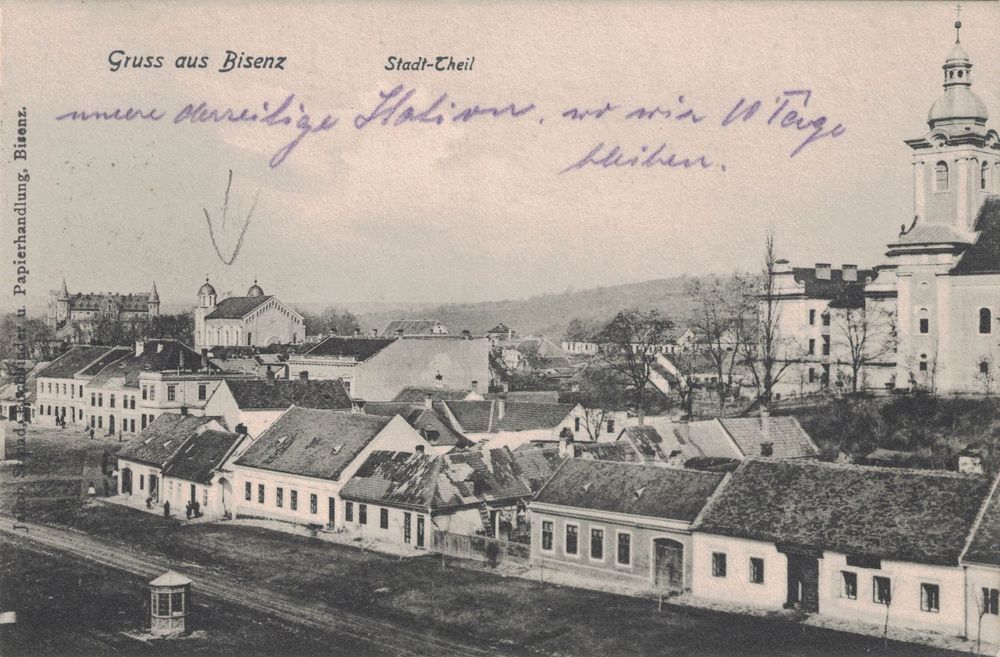 Gruss aus Bisenz
Stadt-Theil
unsere derzeilige Station, wo wir 10 Tage
bleiben.
Jacob Sandler, Buchbinder u. Papierhandlung, Bisenz.